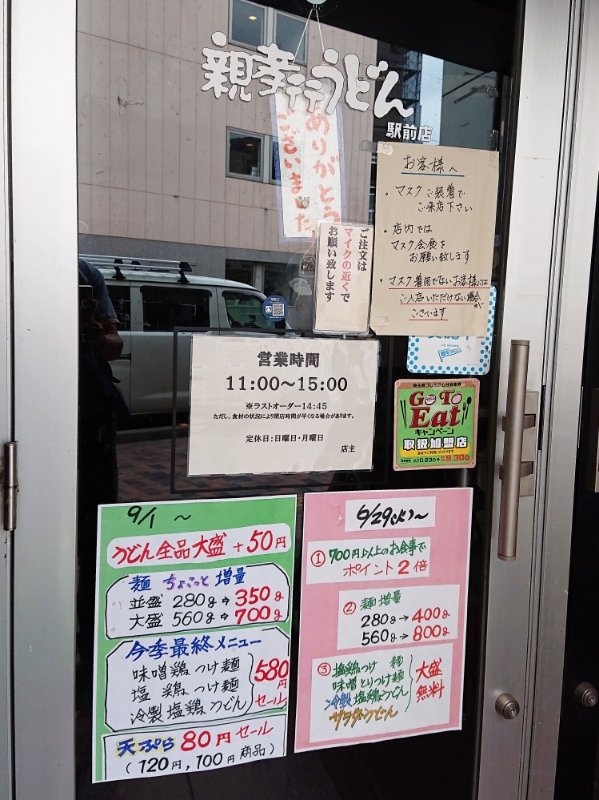 親孝行うどん
駅前店
ありがとう
ございました
お客様へ
・マスクご装着で
ご来店下さい
・店内では
マスク会食を
お願い致します
・マスク着用でないお客様には
ご入店いただけない場合が
ございます
ご注文は
マイクの近くで
お願い致します
営業時間
11:00～15:00
※ラストオーダー14:45
ただし、食材の状況により閉店時間が早くなる場合があります。
定休日:日曜日・月曜日
店主
Go To
Eat
キャンペーン
取扱加盟店
9/1 ～
うどん全品大盛 +50円
麺 ちょこっと 増量
並盛 280g→350g
大盛 560g→700g
今季最終メニュー
味噌鶏つけ麺
塩 鶏つけ麺
冷製塩鶏うどん
580円
セール
天ぷら 80円セール
(120円,100円商品)
6/29(火)～
① 700円以上のお食事で
ポイント2倍
② 麺増量
280g→400g
560g→800g
③ 塩鶏つけ 麺
味噌とりつけ麺
冷製塩鶏うどん
サラダうどん
大盛
無料